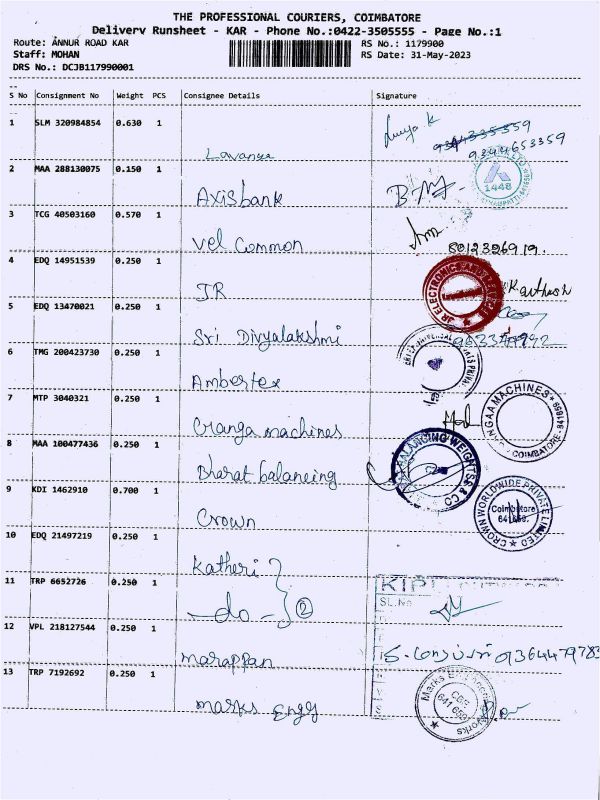 THE PROFESSIONAL COURIERS, COIMBATORE
Delivery Runsheet - KAR - Phone No.:0422-3505555 - Page No.:1
Route: ANNUR ROAD KAR RS No.: 1179900
Staff: MOHAN RS Date: 31-May-2023
DRS No.: DCJB117990001
S No Consignment No Weight PCS Consignee Details Signature
1 SLM 320984854 0.630 1
9344653359
Lavanya
2 MAA 288130075 0.150 1
1448
Axisbank
3 TCG 40503160 0.570 1
Vel Common
8012326919.
4 EDQ 14951539 0.250 1
JR Karthick
JR ELECTRONIC
5 EDQ 13470021 0.250 1
Sri Divyalakshmi
6 TMG 200423730 0.250 1
Ambertex
7 MTP 3040321 0.250 1
MACHINES
COIMBATORE-641659
Cranga machines
8 MAA 100477436 0.250 1
BALANCING WEIGHTS & CO
Bharat balancing
9 KDI 1462910 0.700 1
CROWN WORLDWIDE PRIVATE LIMITED
Coimbatore
641 659.
Crown
10 EDQ 21497219 0.250 1
Katheri
11 TRP 6652726 0.250 1
KIP
SL.No
do 2
12 VPL 218127544 0.250 1
marappan 9364479783
13 TRP 7192692 0.250 1
Marks Engineering Works
CBE
641 659
marks Engg